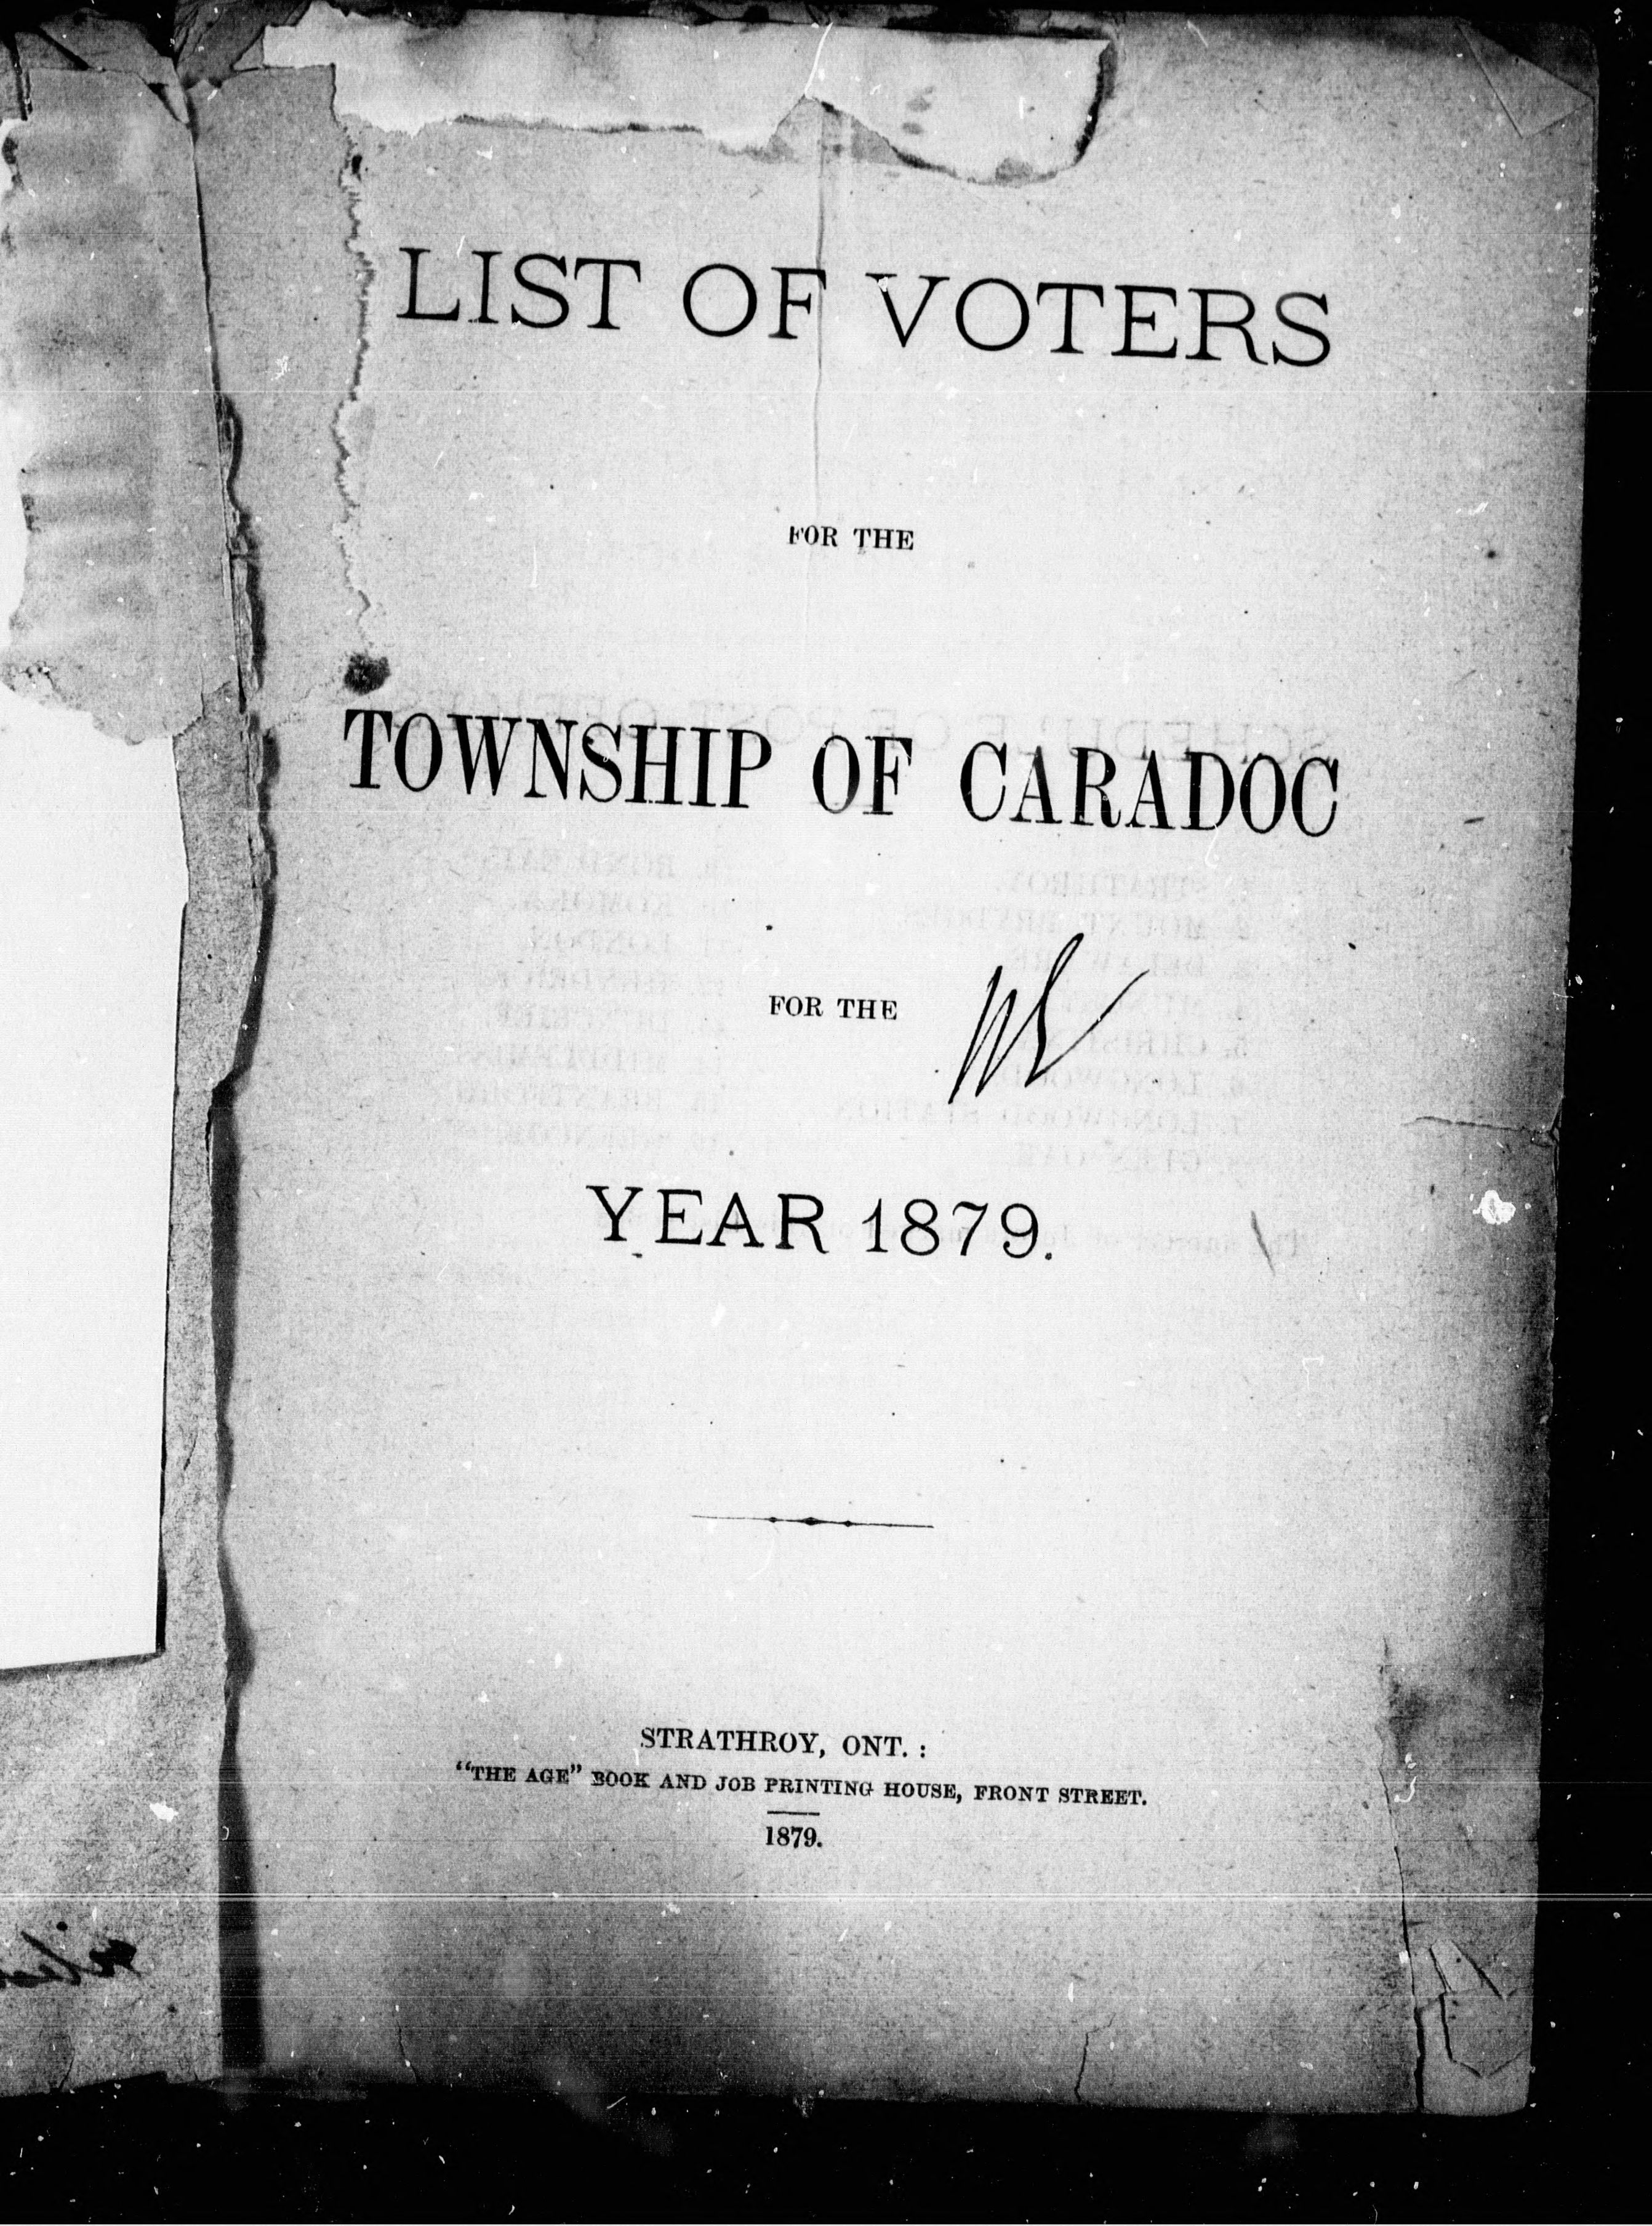 LIST OF VOTERS
FOR THE
TOWNSHIP OF CARADOC
FOR THE
YEAR 1879.
STRATHROY, ONT. :
"THE AGE" BOOK AND JOB PRINTING HOUSE, FRONT STREET.
1879.